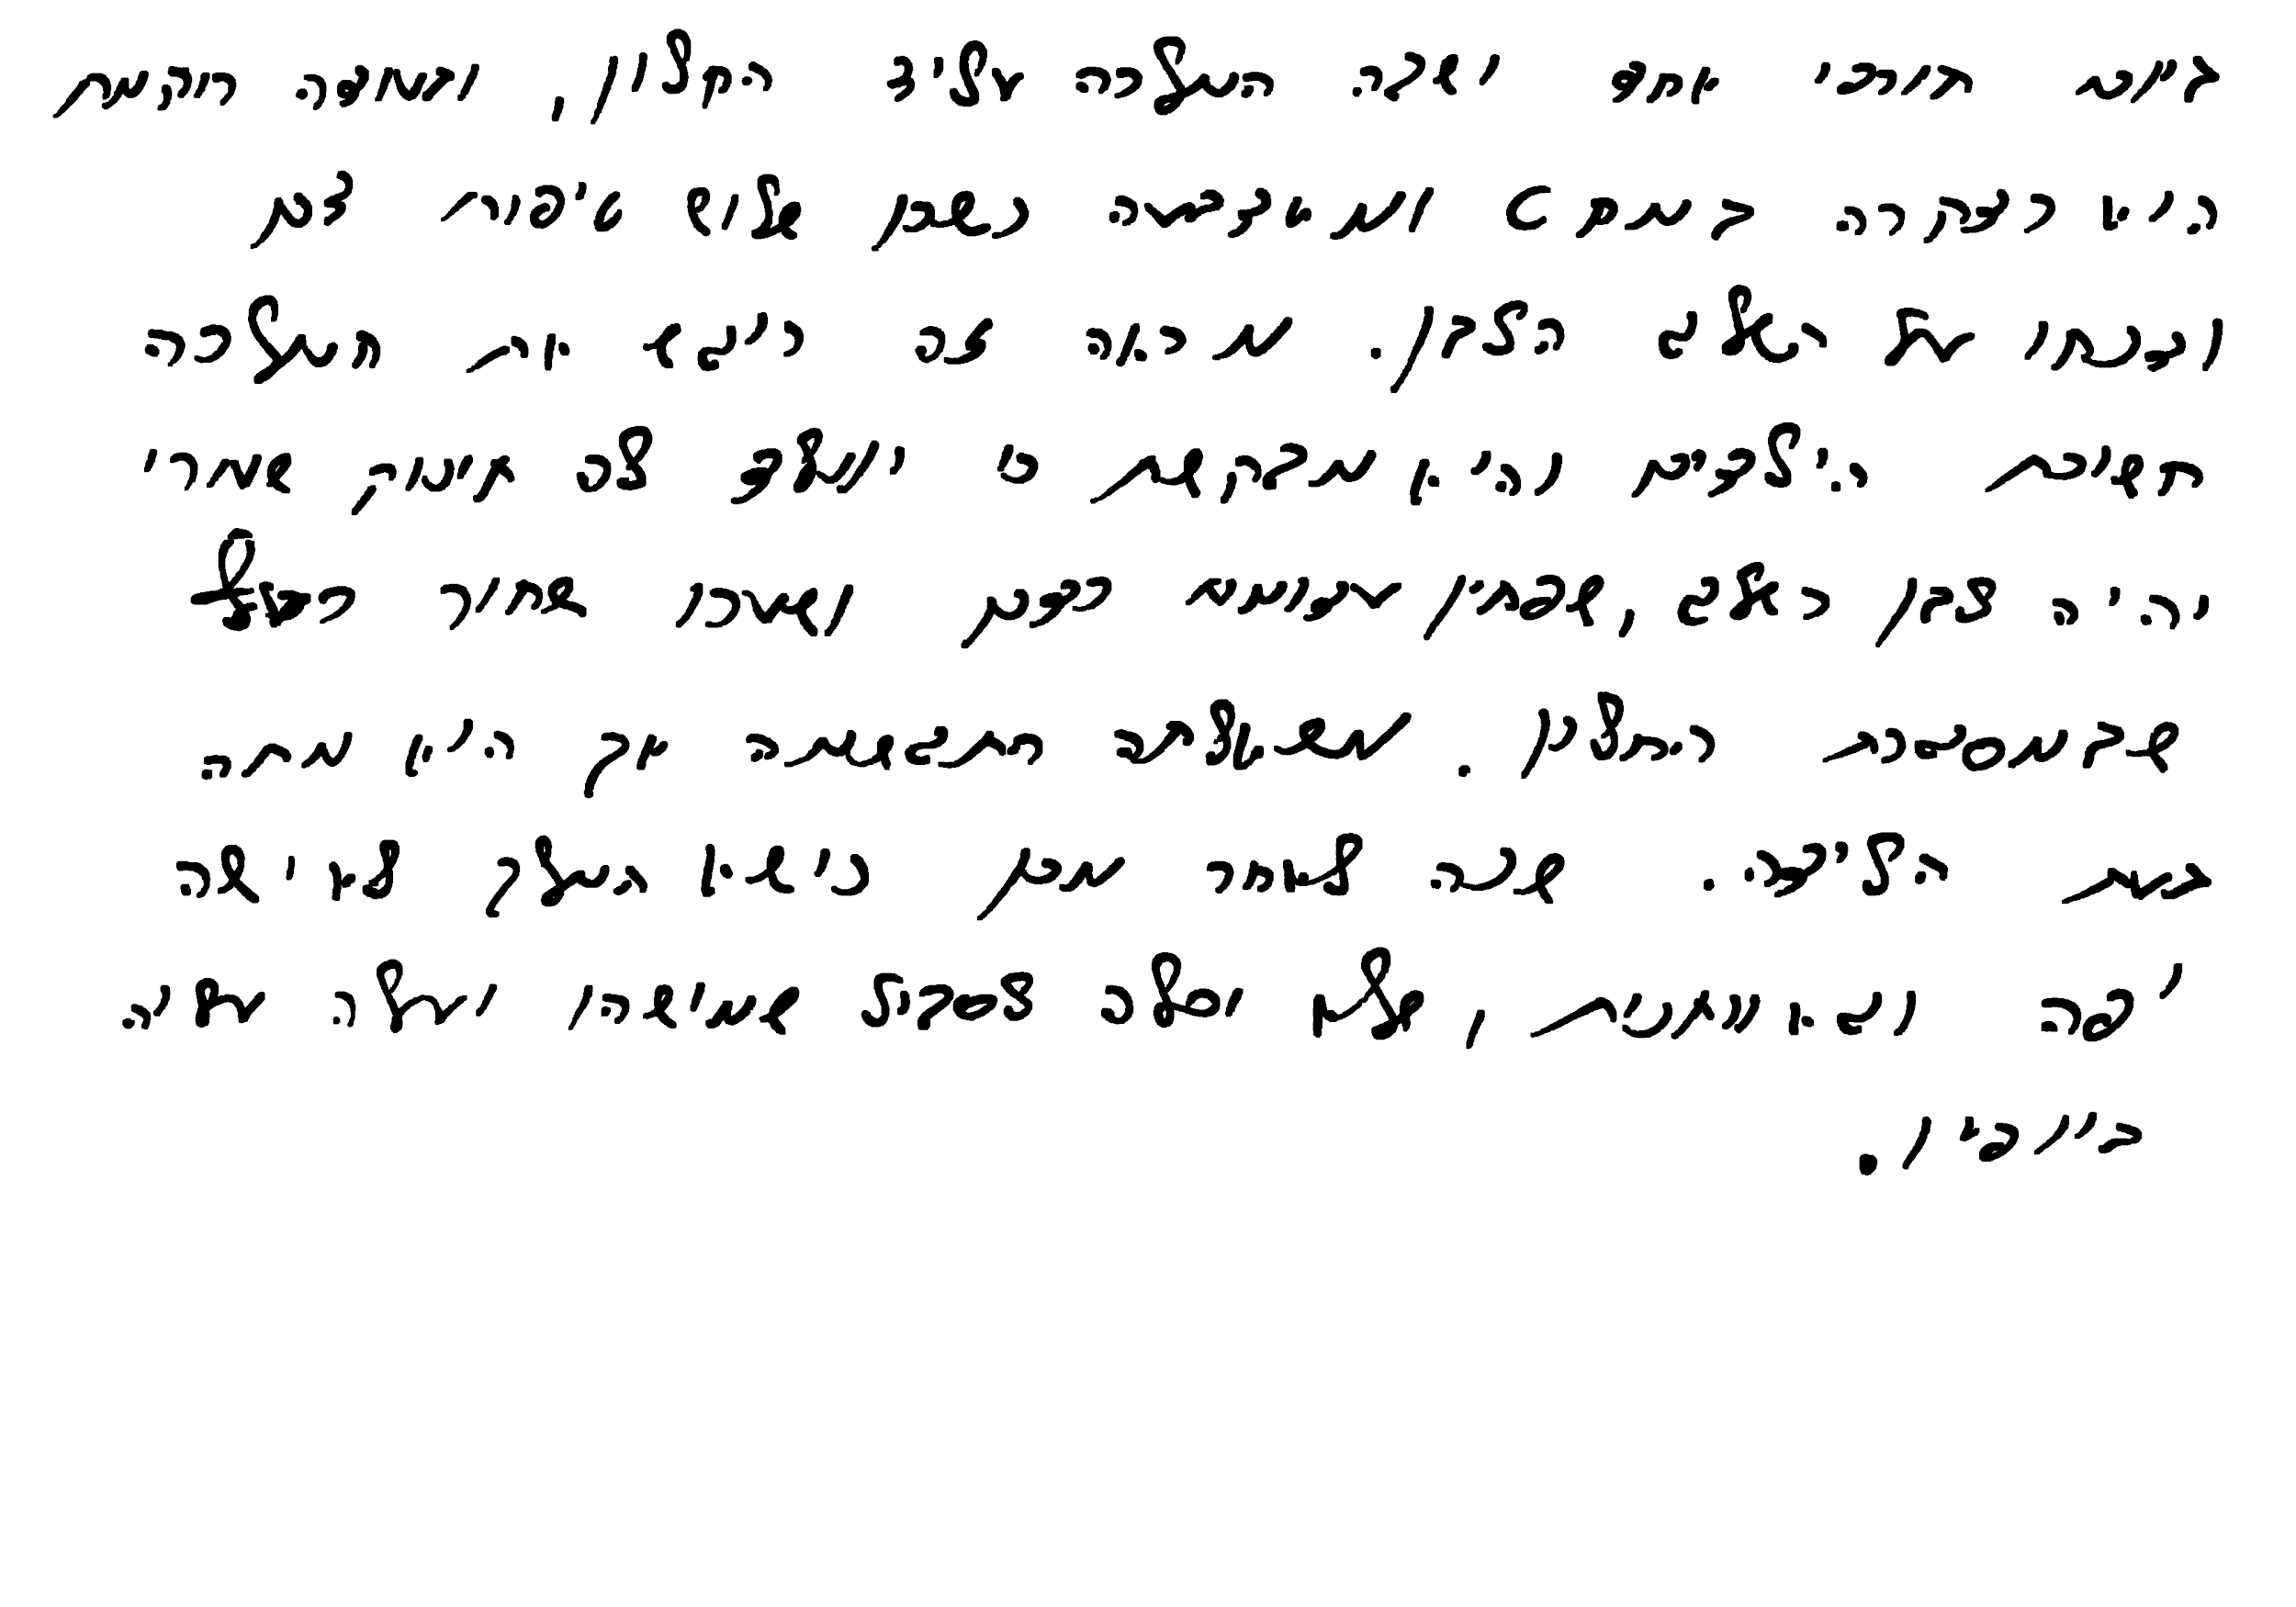 ביום חורפי אחד ישבה המלכה על יד החלון, ובעודה רוקמת
היא נדקרה במחט ומאצבעה נשרו שלוש טיפות דם
וצנחו על השלג הלבן. מראה זה ריגש את המלכה
חשוכת הילדים והיא מבקשת כי יוולד לה תינוק שעורו
יהיה לבן כשלג, שפתיו אדומות כדם ושערו שחור כעץ
שבמסגרת החלון. משאלתה התגשמה אך היא מתה
בעת הלידה. שנה לאחר מכן נישא המלך לאישה
יפה ושאוותנית, שלא יכלה לסבול שמישהו יעלה עליה
ביופיו.